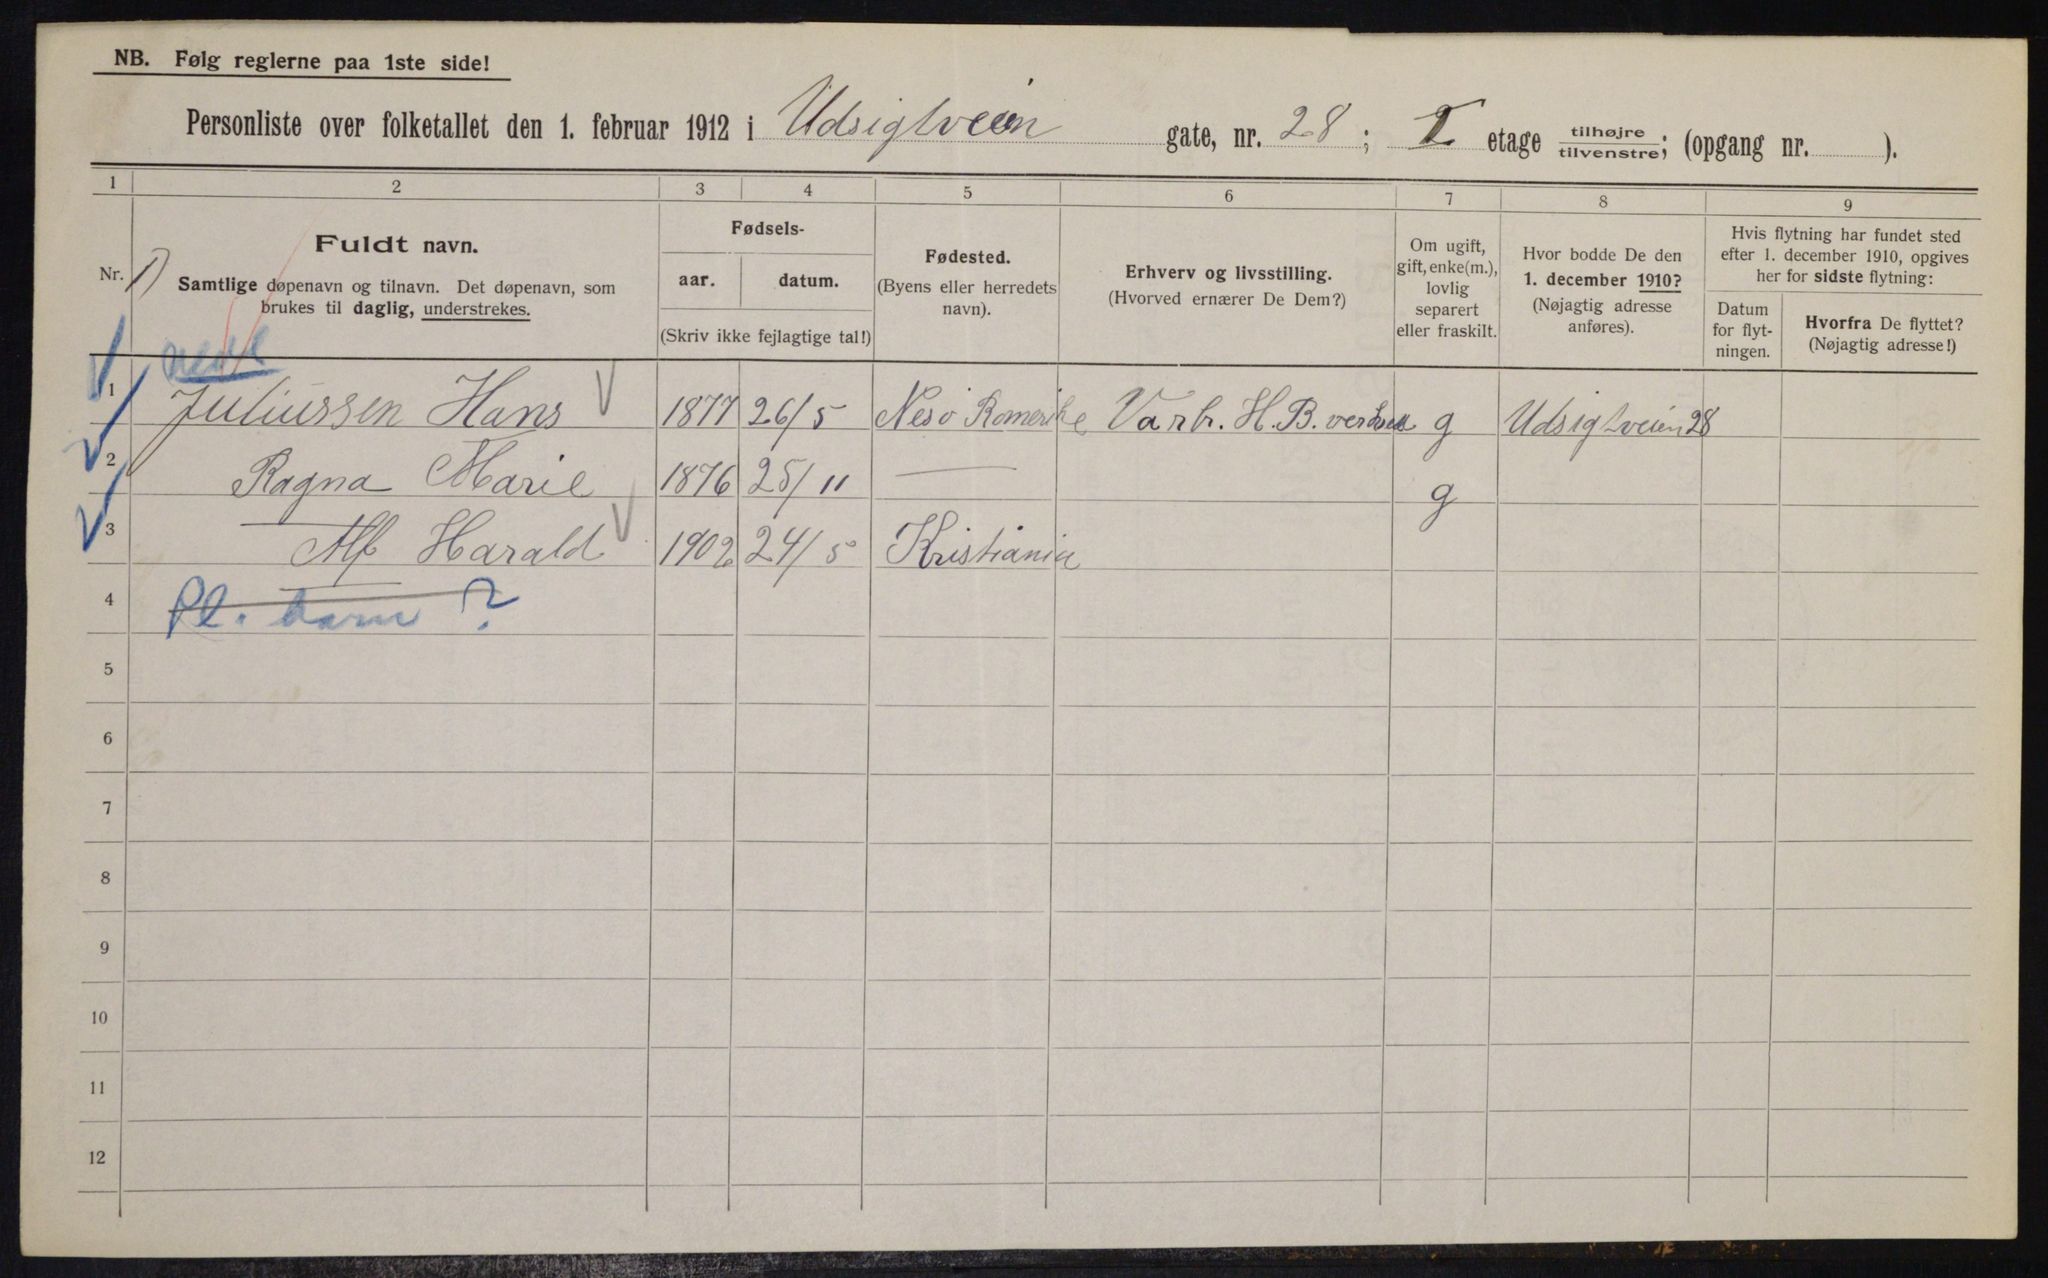 NB. Følg reglerne paa 1ste side!
Personliste over folketallet den 1. februar 1912 i Udsigtveien gate, nr. 28; I etage tilhøjre/tilvenstre; (opgang nr. ).
1 2 3 4 5 6 7 8 9
Nr. 1)
Fuldt navn.
Samtlige døpenavn og tilnavn. Det døpenavn, som
brukes til daglig, understrekes.
Fødsels-
aar. datum.
(Skriv ikke fejlagtige tal!)
Fødested.
(Byens eller herredets
navn).
Erhverv og livsstilling.
(Hvorved ernærer De Dem?)
Om ugift,
gift, enke(m.),
lovlig
separert
eller fraskilt.
Hvor bodde De den
1. december 1910?
(Nøjagtig adresse
anføres).
Hvis flytning har fundet sted
efter 1. december 1910, opgives
her for sidste flytning:
Datum
for flyt-
ningen.
Hvorfra De flyttet?
(Nøjagtig adresse!)
1 Juliussen Hans 1877 26/5 Nesø Romerike Varb. H. B. g Udsigtveien 28
2 Ragna Marie 1876 25/11 g
3 Alf Harald 1902 24/5 Kristiania
4 Pl. barn ?
5
6
7
8
9
10
11
12